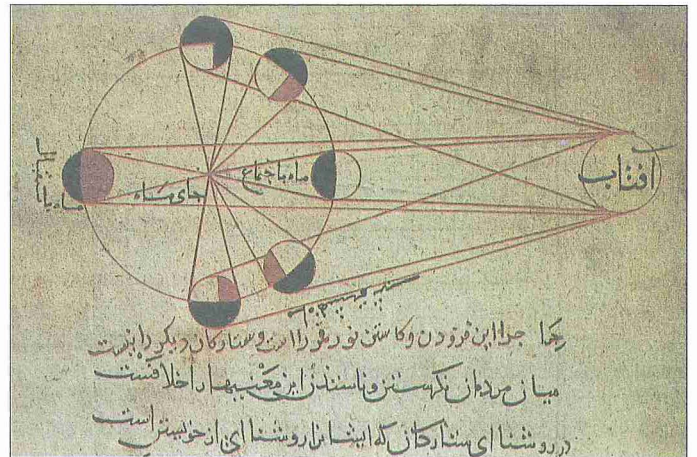 افتاب
ماه باجتماع
جای
ماه باستقبال
چرا این فزودن و کاستن نور قمر را است و ستارکان دیکر را نیست
میان مردمان نکرستن و این معنیها را خلافست
در روشنای ستارکان که ایشانرا روشنای از خویشتن است